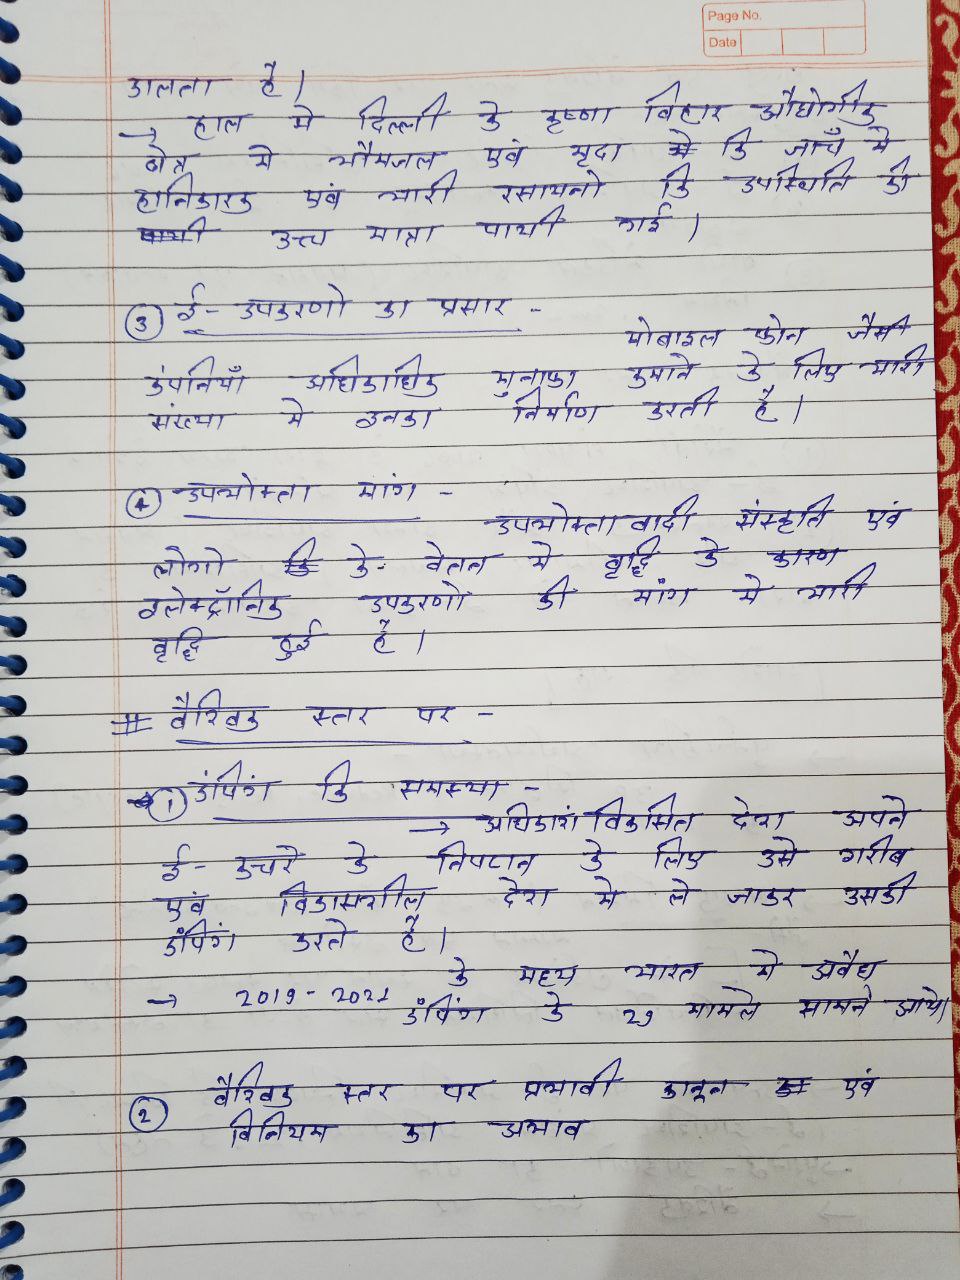 Page No.
Date
डालता है।
→ हाल मे दिल्ली के कृष्णा विहार औद्योगीक
क्षेत्र मे भौमजल एवं मृदा कि जाचँ मे
हानिकारक एवं भारी रसायनो कि उपस्थिति की
उच्च मात्रा पायी गई।
③ ई- उपकरणो का प्रसार -
मोबाइल फोन जैसी
कंपनियाँ अधिकाधिक मुनाफा कमाने के लिए भारी
संख्या मे इनका निर्माण करती है।
④ उपभोक्ता मांग -
उपभोक्तावादी संस्कृति एवं
लोगो के वेतन मे वृद्धि के कारण
इलेक्ट्रॉनिक उपकरणो की मांग मे भारी
वृद्धि हुई है।
# वैश्विक स्तर पर -
① डंपिगं कि समस्या -
→ अधिकाशं विकसित देश अपने
ई- कचरे के निपटान के लिए उसे गरीब
एवं विकासशील देश मे ले जाकर उसकी
डंपिगं करते है।
→ 2019 - 2021 के मध्य भारत मे अवैध
डंपिगं के 29 मामले सामने आये।
② वैश्विक स्तर पर प्रभावी कानून एवं
विनियम का अभाव